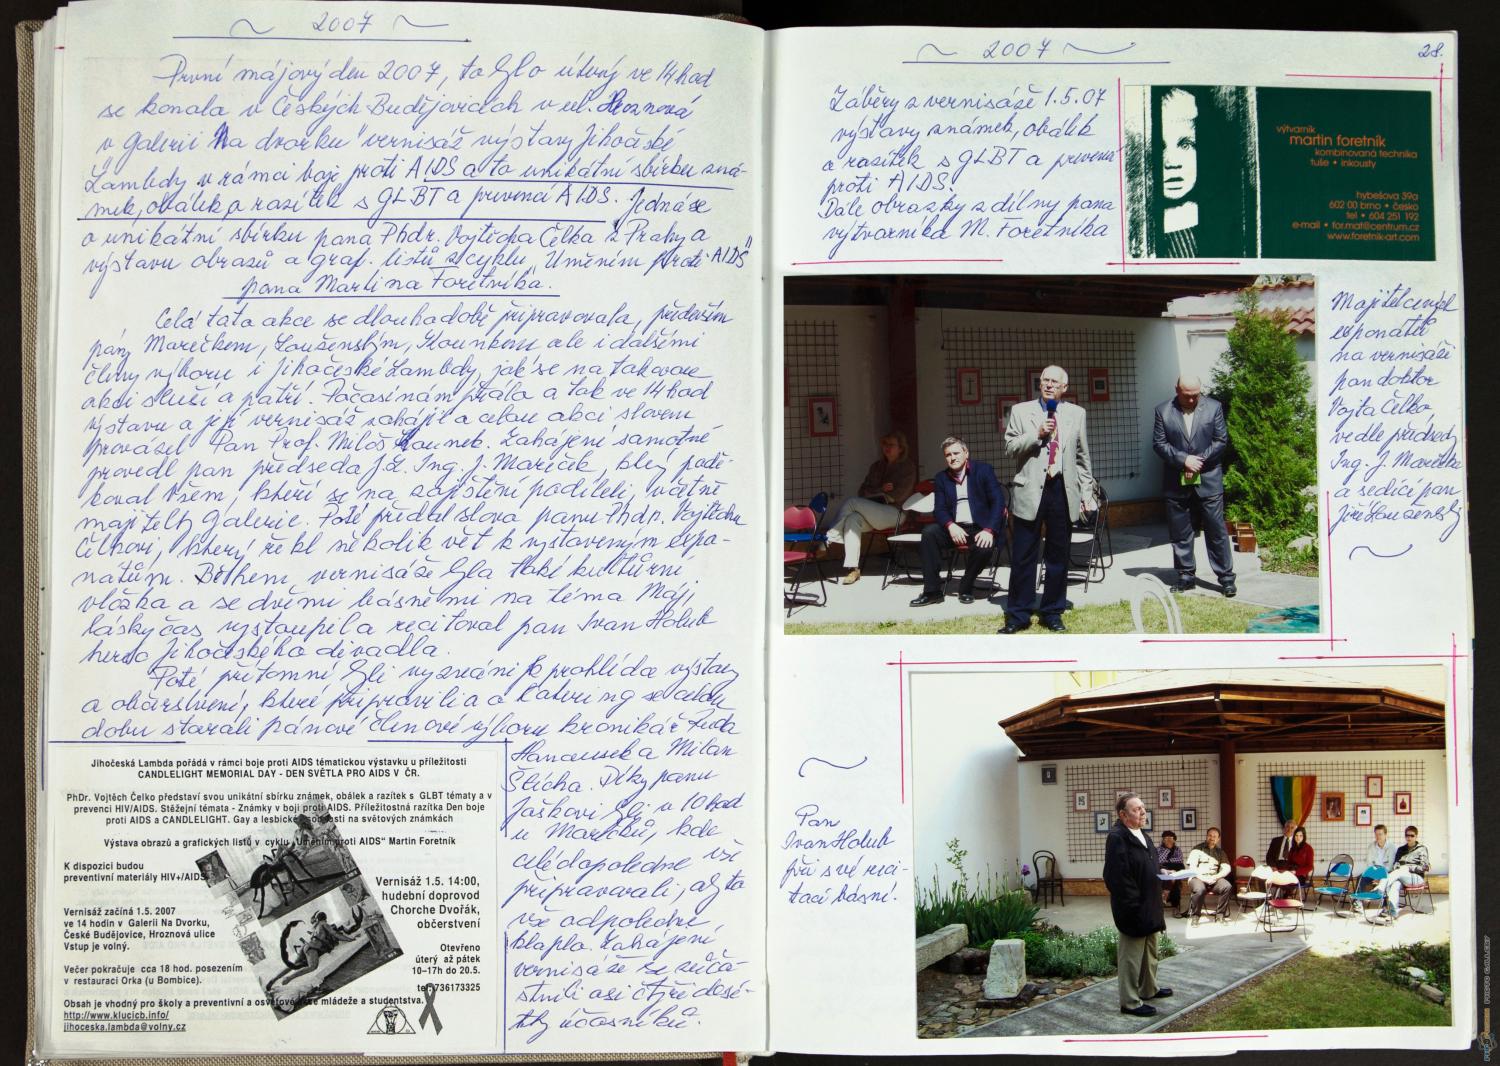 ~ 2007 ~
První májový den 2007, to bylo úterý ve 14 hod
se konala v Českých Budějovicích v ul. Hroznová
v galerii "Na dvorku" vernisáž výstavy Jihočeské
Lambdy v rámci boje proti AIDS a to unikátní sbírku zná-
mek, obálek a razítek s GLBT a prevencí AIDS. Jedná se
o unikátní sbírku pana Phdr. Vojtěcha Čelka z Prahy a
výstavu obrazů a graf. listů z cyklu "Uměním proti AIDS"
pana Martina Foretníka.
Celá tato akce se dlouhodobě připravovala, především
pány Marečkem, Loušenským, Hounkem ale i dalšími
členy výboru i Jihočeské Lambdy, jak se na takovou
akci sluší a patří. Počasí nám přálo a tak ve 14 hod
výstavu a její vernisáž zahájil a celou akci slovem
provázel Pan Prof. Miloš Hounek. Zahájení samotné
provedl pan předseda J.L. Ing. J. Mareček, který podě-
koval všem, kteří se na zajištění podíleli, včetně
majitelky galerie. Poté předal slova panu Phdr. Vojtěchu
Čelkovi, který řekl několik vět k vystaveným expo-
nátům. Během vernisáže byla také kulturní
vložka a se dvěmi básněmi na téma Máj,
lásky čas vystoupil a recitoval pan Ivan Holub
herec Jihočeského divadla.
Poté přítomní byli vyzváni k prohlídce výstavy
a občerstvení, které připravili a o katering se celou
dobu starali pánové členové výboru kronikář Ruda
Hanousek a Milan
Šticha. Díky panu
Jaškovi byli v 10 hod
u Marečků, kde
celé dopoledne vše
připravovali, aby to
vše odpoledne
klaplo. Zahájení
vernisáže se zúča-
stnili asi čtyři desí-
tky účastníků.
Jihočeská Lambda pořádá v rámci boje proti AIDS tématickou výstavku u příležitosti
CANDLELIGHT MEMORIAL DAY - DEN SVĚTLA PRO AIDS V ČR.
PhDr. Vojtěch Čelko představí svou unikátní sbírku známek, obálek a razítek s GLBT tématy a v
prevenci HIV/AIDS. Stěžejní témata - Známky v boji proti AIDS. Příležitostná razítka Den boje
proti AIDS a CANDLELIGHT. Gay a lesbické osobnosti na světových známkách
Výstava obrazů a grafických listů v cyklu „Uměním proti AIDS“ Martin Foretník
K dispozici budou
preventivní materiály HIV+/AIDS
Vernisáž začíná 1.5. 2007
ve 14 hodin v Galerii Na Dvorku,
České Budějovice, Hroznová ulice
Vstup je volný.
Večer pokračuje cca 18 hod. posezením
v restauraci Orka (u Bombice).
Vernisáž 1.5. 14:00,
hudební doprovod
Chorche Dvořák,
občerstvení
Otevřeno
úterý až pátek
10–17h do 20.5.
tel. 736173325
Obsah je vhodný pro školy a preventivní a osvětové akce mládeže a studentstva.
http://www.klucicb.info/
jihoceska.lambda@volny.cz
~ 2007 ~
28.
Záběry z vernisáže 1.5.07
výstavy známek, obálek
a razítek s GLBT a prevencí
proti AIDS.
Dále obrázky z dílny pana
výtvarníka M. Foretníka
výtvarník
martin foretník
kombinovaná technika
tuše • inkousty
hybešova 39a
602 00 brno • česko
tel • 604 251 192
e-mail • for.mat@centrum.cz
www.foretnik-art.com
Majitel
exponátů
na vernisáži
pan doktor
Vojta Čelko,
vedle předsedy
Ing. J. Marečka
a sedící pan
Jiří Loušenský
Pan
Ivan Holub
při své reci-
taci básní.
PHOTO GALLERY